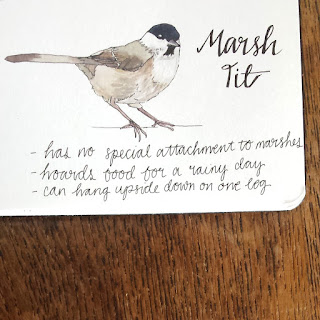 Marsh
Tit
- has no special attachment to marshes
- hoards food for a rainy day
- can hang upside down on one log